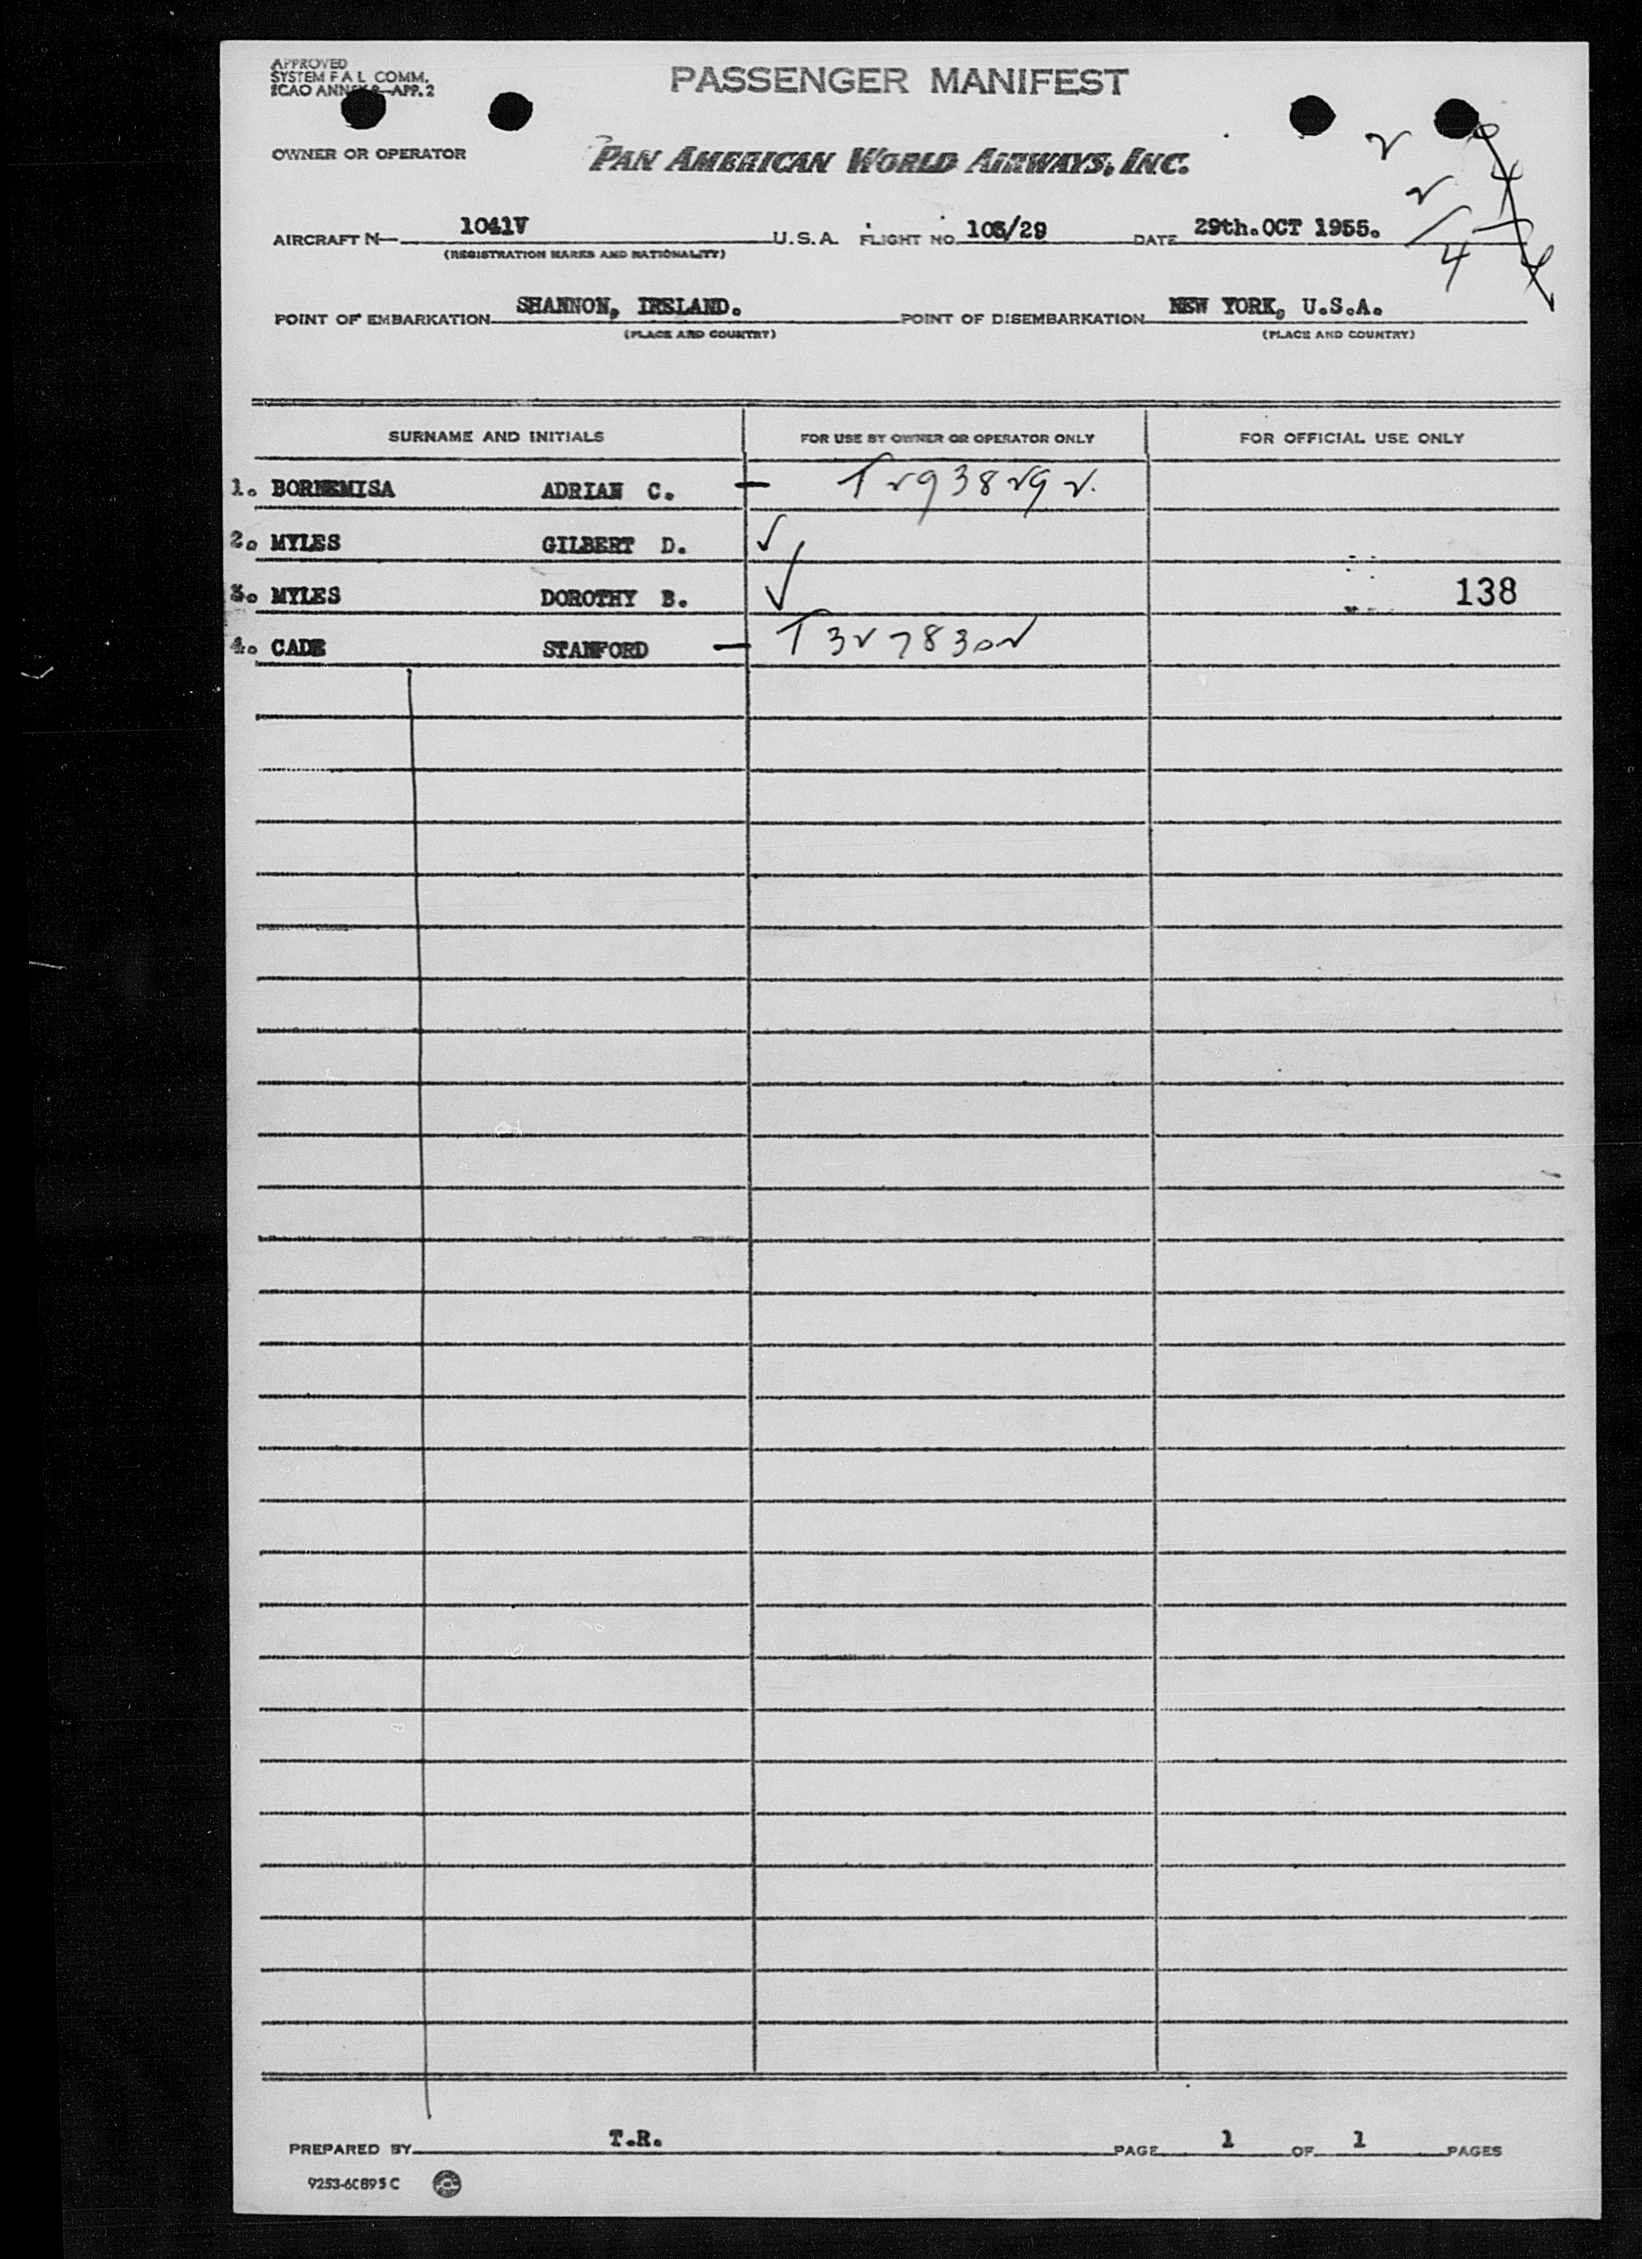 APPROVED
SYSTEM F A L COMM.
ICAO ANNEX 9—APP. 2
PASSENGER MANIFEST
OWNER OR OPERATOR PAN AMERICAN WORLD AIRWAYS, INC.
2
2
4
AIRCRAFT N— 1041V U.S.A. FLIGHT NO. 105/29 DATE 29th.OCT 1955.
(REGISTRATION MARKS AND NATIONALITY)
POINT OF EMBARKATION SHANNON, IRELAND. POINT OF DISEMBARKATION NEW YORK, U.S.A.
(PLACE AND COUNTRY) (PLACE AND COUNTRY)
SURNAME AND INITIALS FOR USE BY OWNER OR OPERATOR ONLY FOR OFFICIAL USE ONLY
1. BORNEMISA ADRIAN C. — T2938292.
2. MYLES GILBERT D. ✓
3. MYLES DOROTHY B. ✓ 138
4. CADE STANFORD — T3278302
PREPARED BY T.R. PAGE 1 OF 1 PAGES
9253-6C895 C